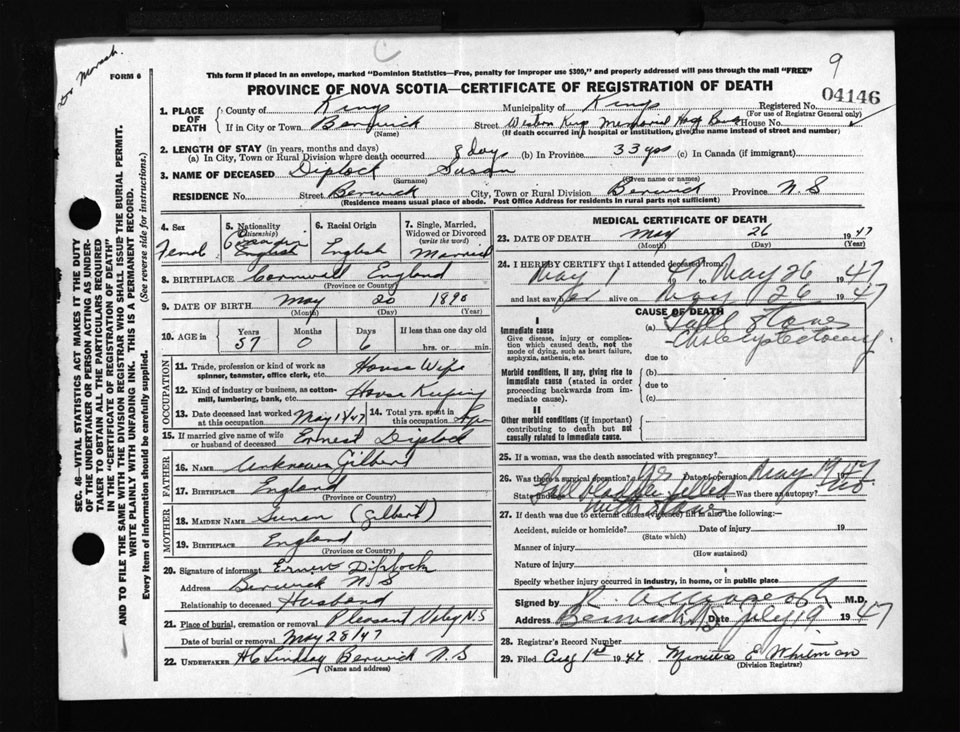 9
Dr Morash.
FORM 6
This form if placed in an envelope, marked "Dominion Statistics—Free, penalty for improper use $300," and properly addressed will pass through the mail "FREE"
PROVINCE OF NOVA SCOTIA—CERTIFICATE OF REGISTRATION OF DEATH
04146
SEC. 46—VITAL STATISTICS ACT MAKES IT THE DUTY
OF THE UNDERTAKER OR PERSON ACTING AS UNDER-
TAKER TO OBTAIN ALL THE PARTICULARS REQUIRED
IN THE "CERTIFICATE OF REGISTRATION OF DEATH"
AND TO FILE THE SAME WITH THE DIVISION REGISTRAR WHO SHALL ISSUE THE BURIAL PERMIT.
WRITE PLAINLY WITH UNFADING INK. THIS IS A PERMANENT RECORD.
Every item of information should be carefully supplied. (See reverse side for instructions.)
1. PLACE OF DEATH County of Kings Municipality of Kings Registered No.
(For use of Registrar General only)
If in City or Town Berwick Street Western Kings Memorial Hosp House No.
(Name) (If death occurred in a hospital or institution, give the name instead of street and number)
2. LENGTH OF STAY (in years, months and days)
(a) In City, Town or Rural Division where death occurred 8 days (b) In Province 33 yrs (c) In Canada (if immigrant)
3. NAME OF DECEASED Diplock Susan
(Surname) (Given name or names)
RESIDENCE No. Street Berwick City, Town or Rural Division Berwick Province N.S
(Residence means usual place of abode. Post Office Address for residents in rural parts not sufficient)
4. Sex
5. Nationality (Citizenship) Canadian English
6. Racial Origin English
7. Single, Married, Widowed or Divorced (write the word) Married
8. BIRTHPLACE Cornwall England
(Province or Country)
9. DATE OF BIRTH May 20 1890
(Month) (Day) (Year)
10. AGE in Years 57 Months 0 Days 6 If less than one day old
hrs. or min.
OCCUPATION
11. Trade, profession or kind of work as spinner, teamster, office clerk, etc. House Wife
12. Kind of industry or business, as cotton-mill, lumbering, bank, etc. House Keeping
13. Date deceased last worked at this occupation 14. Total yrs. spent in this occupation
15. If married give name of wife or husband of deceased Ernest Diplock
FATHER
16. NAME Unknown Gilbert
17. BIRTHPLACE England
(Province or Country)
MOTHER
18. MAIDEN NAME (Gilbert)
19. BIRTHPLACE England
(Province or Country)
20. Signature of informant Ernest Diplock
Address Berwick N S
Relationship to deceased Husband
21. Place of burial, cremation or removal Pleasant Valley N.S
Date of burial or removal May 28/47
22. UNDERTAKER H C Lindsay Berwick N.S
(Name and address)
MEDICAL CERTIFICATE OF DEATH
23. DATE OF DEATH May 26 1947
(Month) (Day) (Year)
24. I HEREBY CERTIFY that I attended deceased from
May 1 47 to May 26 1947
and last saw her alive on May 26 1947
CAUSE OF DEATH
I
Immediate cause (a) Gall Stones
Give disease, injury or complication which caused death, not the mode of dying, such as heart failure, asphyxia, asthenia, etc. Cholecystectomy
due to
Morbid conditions, if any, giving rise to immediate cause (stated in order proceeding backwards from immediate cause). (b)
due to
(c)
II
Other morbid conditions (if important) contributing to death but not causally related to immediate cause.
25. If a woman, was the death associated with pregnancy?
26. Was there a surgical operation? Yes Date of operation May 19 1947
State findings Gall bladder filled with stones Was there an autopsy? No
27. If death was due to external causes (violence) fill in also the following:—
Accident, suicide or homicide? Date of injury 19
(State which)
Manner of injury
(How sustained)
Nature of injury
Specify whether injury occurred in industry, in home, or in public place
Signed by M.D.
Address Berwick NS July 19 1947
28. Registrar's Record Number
29. Filed Aug 1st 1947 E. Whitman
(Division Registrar)